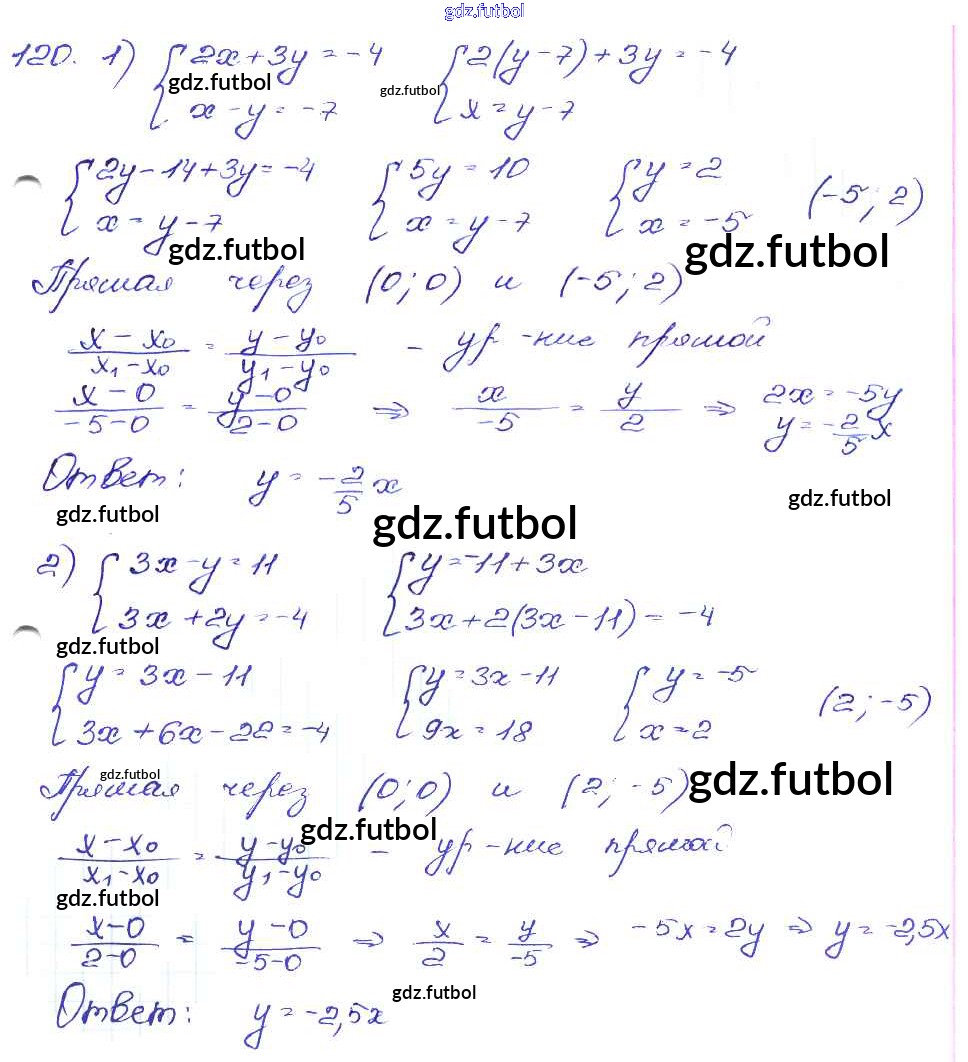 gdz.futbol
120. 1) { 2x + 3y = -4 { 2(y - 7) + 3y = -4
gdz.futbol gdz.futbol
x - y = -7 x = y - 7
{ 2y - 14 + 3y = -4 { 5y = 10 { y = 2 (-5; 2)
x = y - 7 x = y - 7 x = -5
gdz.futbol gdz.futbol
Прямая через (0; 0) и (-5; 2)
(x - x₀)/(x₁ - x₀) = (y - y₀)/(y₁ - y₀) - ур-ние прямой
(x - 0)/(-5 - 0) = (y - 0)/(2 - 0) ⇒ x/-5 = y/2 ⇒ 2x = -5y
y = -2/5 x
Ответ: y = -2/5 x
gdz.futbol gdz.futbol gdz.futbol
2) { 3x - y = 11 { y = -11 + 3x
3x + 2y = -4 3x + 2(3x - 11) = -4
gdz.futbol
{ y = 3x - 11 { y = 3x - 11 { y = -5 (2; -5)
3x + 6x - 22 = -4 9x = 18 x = 2
gdz.futbol gdz.futbol
Прямая через (0; 0) и (2; -5)
gdz.futbol
(x - x₀)/(x₁ - x₀) = (y - y₀)/(y₁ - y₀) - ур-ние прямой
gdz.futbol
(x - 0)/(2 - 0) = (y - 0)/(-5 - 0) ⇒ x/2 = y/-5 ⇒ -5x = 2y ⇒ y = -2,5x
gdz.futbol
Ответ: y = -2,5x